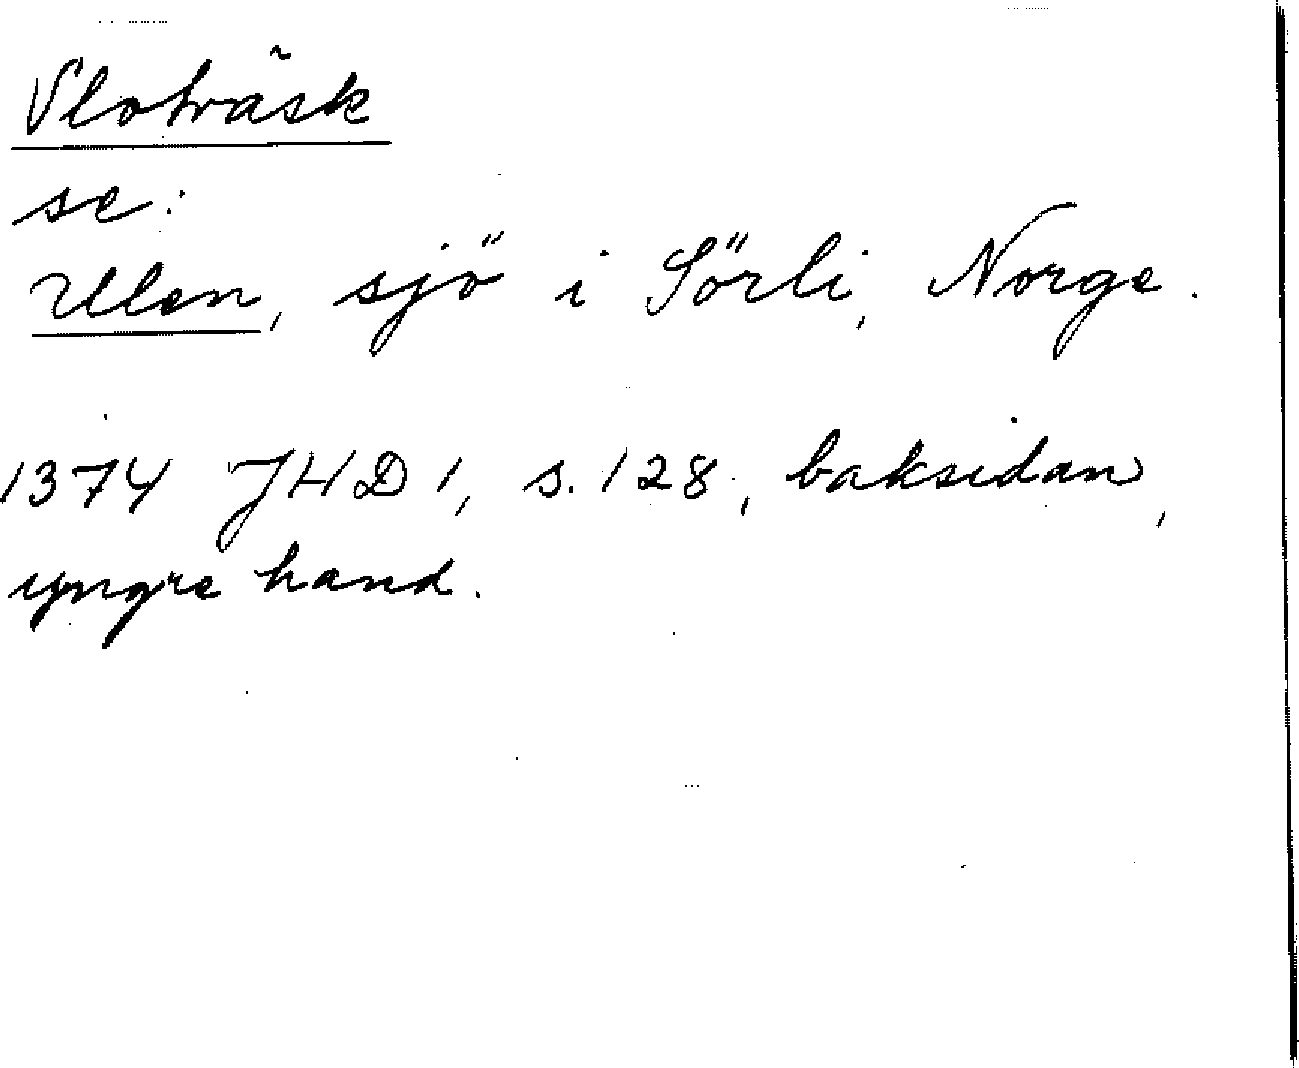 Vloträsk
se:
Ulen, sjö i Sörli, Norge.
1374 JHD 1, s. 128, baksidan,
yngre hand.